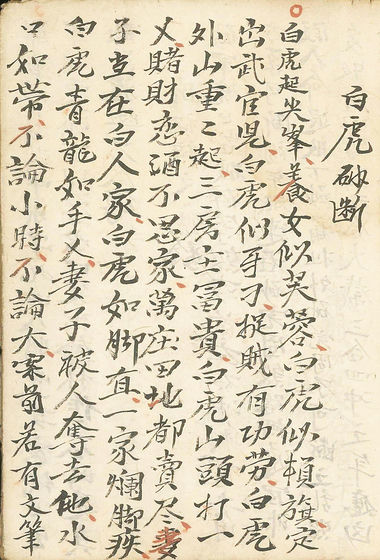 白虎砂断
白虎起尖峯養女似芙蓉白虎似頓旗定
出武官児白虎似牙刁捉賊有功劳白虎
外山重〻起三房主冨貴白虎山頭打一
乂賭財恋酒不思家萬庄田地都賣尽妻
子坐在白人家白虎如脚直一家爛脚疾
白虎青龍如手乂妻子被人奪去他水
口如帶不論小時不論大案前若有文筆